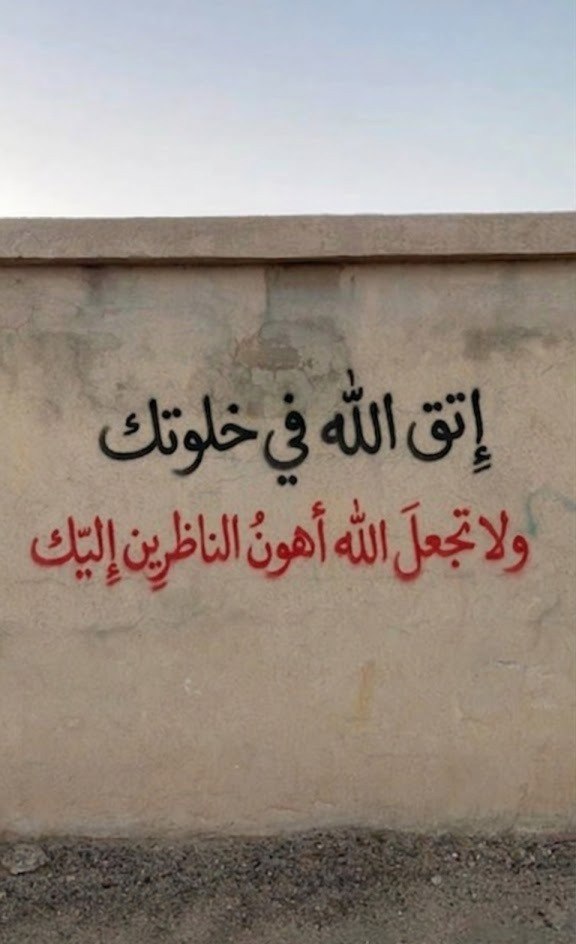 إِتق الله في خلوتك
ولا تجعلَ الله أهونُ الناظرِين إِليّك